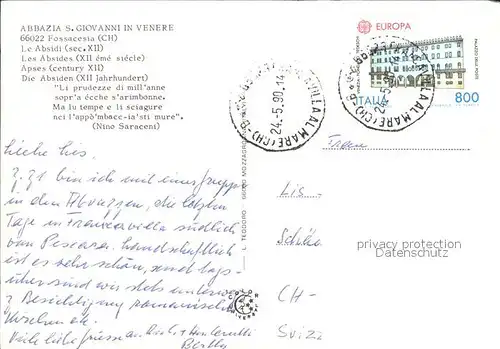 ABBAZIA S. GIOVANNI IN VENERE
66022 Fossacesia (CH)
Le Absidi (sec.XII)
Les Absides (XII éme siécle)
Apses (century XII)
Die Absiden (XII Jahrhundert)
"Li prudezze di mill'anne
sopr'a ècche s'arimbonne.
Ma lu tempe e li sciagure
nci l'appò'mbacc-ia'sti mure".
(Nino Saraceni)
EUROPA
ITALIA 800
24.-5.90.14
VILLA AL MARE (CH)
Liebe Lis.
z. Zt bin ich mit einer Gruppe
in den Abruzzen, die letzten
Tage in Francavilla südlich
von Pescara. Landschaftlich
ist es sehr schön, und tags-
über sind wir stets unterwegs
z Besichtigung romanischer
Kirchen etc.
Viele liebe Grüsse an Dich +
Bertha
L. TEODORO
Frau
Lis
privacy protection
Datenschutz
CH-
Sviz